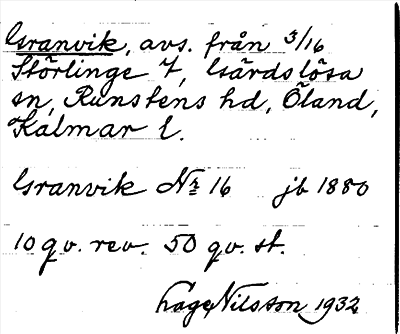 Granvik, avs. från 3/16
Störlinge 7, Gärdslösa
sn, Runstens hd, Öland,
Kalmar l.
Granvik Nr 16 jb 1880
10 qv. rev. 50 qv. st.
Åage Nilsson 1932